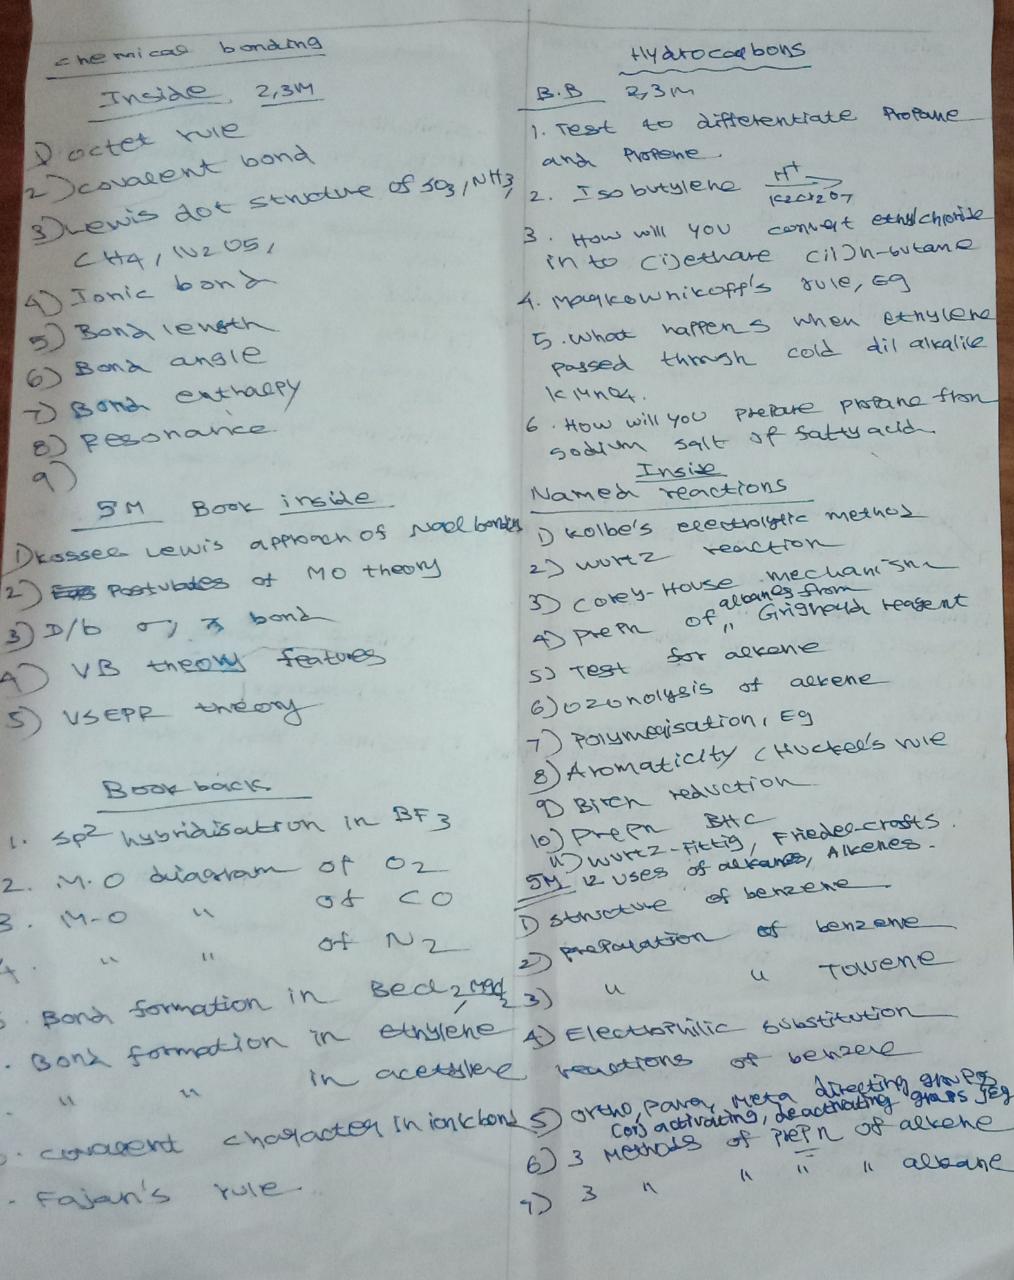 Chemical bonding
Inside 2,3M
1) octet rule
2) covalent bond
3) Lewis dot structure of SO3, NH3,
CH4, N2O5,
4) Ionic bond
5) Bond length
6) Bond angle
7) Bond enthalpy
8) Resonance
9)
5M Book inside
1) Kossel Lewis approach of
2) Postulates of MO theory
3) D/b σ, π bond
4) VB theory features
5) VSEPR theory
Book back
1. Sp2 hybridisation in BF3
2. M.O diagram of O2
3. M-O " of CO
4. " " of N2
Bond formation in BeCl2, MgCl2
. Bond formation in ethylene
" " in acetylene
. covalent character in ionic bond
. Fajan's rule
Hydrocarbons
B.B 2,3M
1. Test to differentiate Propane
and Propene
2. Isobutylene H+ K2Cr2O7
3. How will you convert ethylchloride
in to (i) ethane (ii) n-butane
4. Markownikoff's rule, Eg
5. What happens when ethylene
passed through cold dil alkalile
KMnO4.
6. How will you prepare propane from
sodium salt of fatty acid.
Inside
Named reactions
1) Kolbe's electrolytic method
2) wurtz reaction
3) Corey-House mechanism
4) prepn of alkanes from " Grignard reagent
5) Test for alkene
6) ozonolysis of alkene
7) Polymerisation, Eg
8) Aromaticity (Huckel's rule
9) Birch reduction
10) Prepn BHC
11) Wurtz-Fittig, Friedel-Crafts.
5M 12 uses of alkanes, Alkenes.
1) Structure of benzene
2) preparation of benzene
3) " " Toluene
4) Electrophilic substitution
reactions of benzene
5) ortho, para, meta directing groups
(or) activating, deactivating groups Eg
6) 3 Methods of prepn of alkene
7) 3 " " " alkane